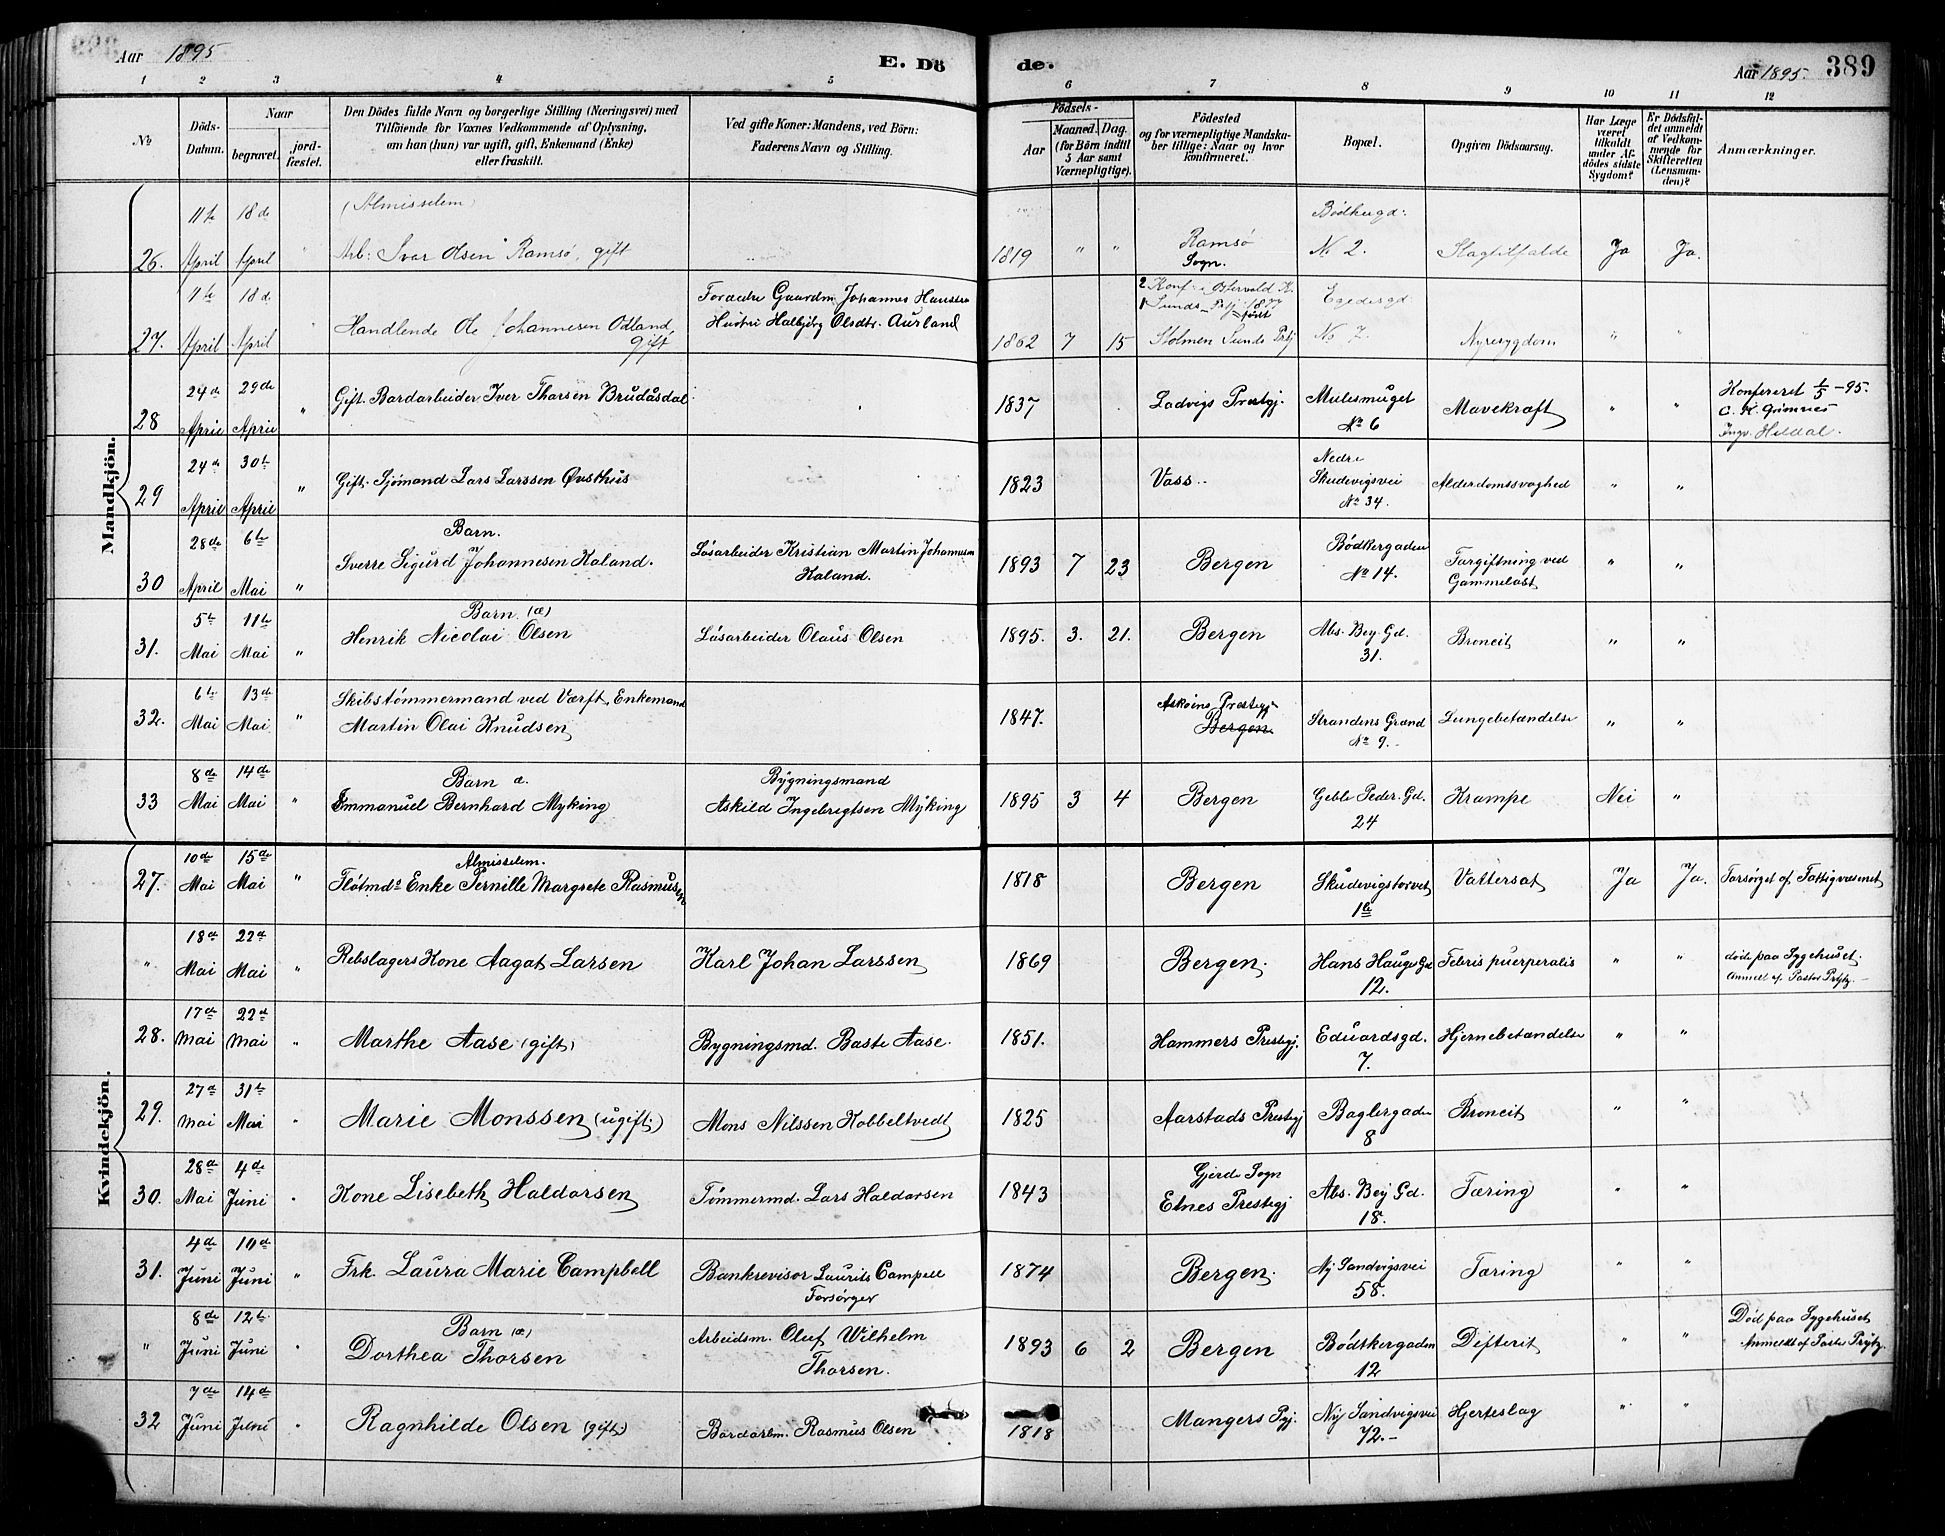 Aar 1895
E. Dö
de.
Aar 1895. 389
1 2 3 4 5 6 7 8 9 10 11 12
No
Döds-
Datum.
Naar
begravet.
jord-
fæstet.
Den Dödes fulde Navn og borgerlige Stilling (Næringsvei) med
Tilföiende for Voxnes Vedkommende af Oplysning,
om han (hun) var ugift, gift, Enkemand (Enke)
eller fraskilt.
Ved gifte Koner: Mandens, ved Börn:
Faderens Navn og Stilling.
Födsels-
Aar
Maaned. Dag.
(for Börn indtil
5 Aar samt
Værnepligtige).
Födested
og for værnepligtige Mandska-
ber tillige: Naar og hvor
konfirmeret.
Bopæl.
Opgiven Dödsaarsag.
Har Læge
været
tilkaldt
under Af-
dödes sidste
Sygdom?
Er Dödsfal-
det anmeldt
af Vedkom-
mende for
Skifteretten
(Lensman-
den)?
Anmærkninger.
Mandkjön.
11te 18de (Almisselem) Bödkergd:
26. April April " Arb: Ivar Olsen Ramsø, gift 1819 " " Ramsø Sogn. No 2. Slagtilfælde Ja Ja.
18de Forældre Gaardm. Johannes Hansen Egedesgd
27. April April " Handlende Ole Johannesen Odland, gift Hustru Halbjörg Olsdtr. Aurland 1862 7 15 Stolmen Sunds Prtj No 7. Nyresygdom " "
24de 29de
28 April April " Gift. Bordarbeider Iver Thorsen Brudåsdal 1837 Ladvigs Prestgj. Mulesmuget No 6 Mavekræft " " Konfereret 1/5 - 95.
C. K. Grimnes
Ingv. Heldal.
24de 30te
29 April April " Gift. Sjømand Lars Larssen Øvsthus 1823 Vass. Nedre Skudevigsvei No 34. Alderdomssvaghed " "
28de 6te Barn.
30 April Mai " Sverre Sigurd Johannesen Kaland. Løsarbeider Kristian Martin Johannesen Kaland. 1893 7 23 Bergen Bødkergaden No 14. Forgiftning ved Gammelost " "
5te 11te Barn (æ)
31. Mai Mai " Henrik Nicolai Olsen Løsarbeider Olaus Olsen 1895. 3. 21. Bergen Abs. Bey. Gd. 31. Broncit " "
6te 13de Skibstømmermand ved Værft, Enkemand
32. Mai Mai " Martin Olai Knudsen 1847. Askøins Prestegj. Bergen Strandens Grand No 9. Lungebetændelse " "
8de 14de Barn æ. Bygningsmand
33 Mai Mai " Emmanuel Bernhard Myking Askild Ingebrigtsen Myking 1895 3 4 Bergen Geble Peder. Gd. 24 Krampe Nei "
Kvindekjön.
10de 15de Almisselem.
27. Mai Mai " Fløtmds Enke Pernille Margrete Rasmussen 1818 Bergen Skudevigstorvet 1b Vattersot Ja Ja. Forsørget af Fattigvæsenet
18de 22de
" Mai Mai " Rebslagers Kone Aagot Larsen Karl Johan Larssen 1869 Bergen. Hans Hauges Gd 12. Febris puerperalis " " døde paa Sygehuset.
Anmeldt af Pastor Prytz.
17de 22de
28. Mai Mai " Marthe Aase (gift) Bygningsmd. Baste Aase. 1851. Hammers Prestegj. Eduardsgd. 7. Hjernebetændelse " "
27de 31te
29. Mai Mai " Marie Monssen (ugift.) Mons Nilssen Kobbeltvedt 1825 Aarstads Prestegj Baglergaden 8 Broncit " "
28de 4de Gjerde Sogn
30. Mai Juni " Kone Lisebeth Haldorsen Tømmermd. Lars Haldorsen 1843 Etnes Prestegj Abs. Bey Gd. 18. Tæring " "
4de 10de
31. Juni Juni " Frk. Laura Marie Campbell Bankrevisor Laurits Campell Forsørger 1874 Bergen. Ny Sandvigsvei 58. Tæring " "
8de 12te Barn (æ) Død paa Sygehuset
" Juni Juni " Dorthea Thorsen Arbeidsm. Oluf Wilhelm Thorsen. 1893 6 2 Bergen Bødkergaden 12 Difterit " " Anmeldt af Pastor Prytz.
7de 14de
32 Juni Juni " Ragnhilde Olsen (gift) Bordarbm. Rasmus Olsen 1818 Mangers Pgj. Ny Sandvigsvei 72.- Hjerteslag " "